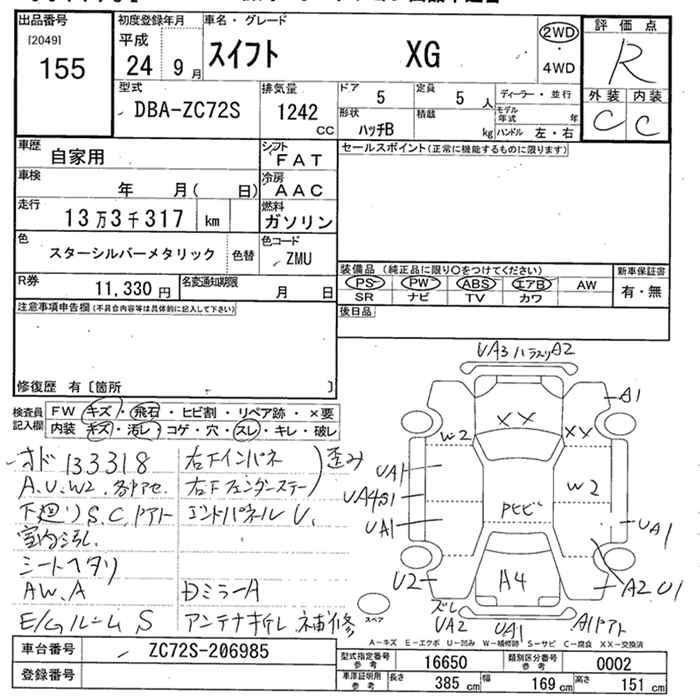 出品番号
[2049]
155
初度登録年月
平成
24 9月
車名・グレード
スイフト XG
2WD
・
4WD
評価点
R
外装 内装
C C
型式
DBA-ZC72S
排気量
1242 CC
ドア
5
定員
5 人
ディーラー・並行
モデル年式 年
形状
ハッチB
積載
kg
ハンドル 左・右
車歴
自家用
シフト
FAT
車検
年 月( 日)
冷房
AAC
走行
13万3千317 km
燃料
ガソリン
色
スターシルバーメタリック
色替
色コード
ZMU
R券
11,330円
名変通知期限
月 日
セールスポイント(正常に機能するものに限ります)
装備品(純正品に限り○をつけてください)
PS PW ABS エアB AW
SR ナビ TV カワ
新車保証書
有・無
後日品
注意事項申告欄(不具合内容等は具体的に記入して下さい)
修復歴 有[箇所 ]
検査員
記入欄
FW キズ・飛石・ヒビ割・リペア跡・×要
内装 キズ・汚レ・コゲ・穴・スレ・キレ・破レ
オド133318
A.U.W2.
下廻りS.C.
室内汚レ
シートヘタリ
AW.A
E/GルームS
右下インパネ
右下フェンダーステー
歪み
エンドパネルU.
DミラーA
アンテナ折レ 補修
UA3 A2
A1
XX
W2
XX
UA1
W2
UA1
UA1
PヒビA4
U2
A2 U1
ズレ
UA2
UA1
スペア
A－キズ E－エクボ U－凹み W－補修跡 S－サビ C－腐食 XX－交換済
車台番号
ZC72S-206985
登録番号
型式指定番号
参考
16650
類別区分番号
参考
0002
車庫証明用
参考
長さ
385 cm
幅
169 cm
高さ
151 cm